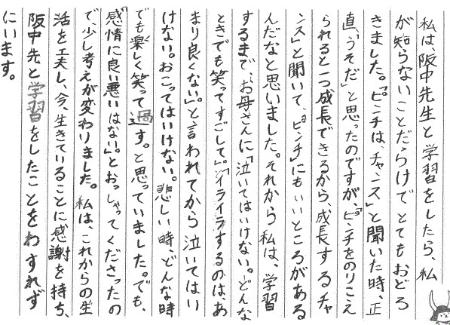 私は、阪中先生と学習をしたら、私
が知らないことだらけでとてもおどろ
きました。「ピンチは、チャンス」と聞いた時、正
直、「うそだ」と思ったのですが、「ピンチをのりこえ
られると一つ成長できるから、成長するチャ
ンス」と聞いて、「ピンチ」にもいいところがある
んだなと思いました。それから私は、学習
するまで、お母さんに「泣いてはいけない。どんな
ときでも笑ってすごして。「イライラするのは、あ
まり良くない。」と言われてから泣いてはい
けない。おこってはいけない。悲しい時、どんな時
でも楽しく笑って過す。と思っていました。でも、
「感情に良い悪いはない。」とおっしゃってくださったの
で、少し考えが変わりました。私は、これからの生
活を工夫し、今、生きていることに感謝を持ち、
阪中先と学習をしたことをわすれず
にいます。